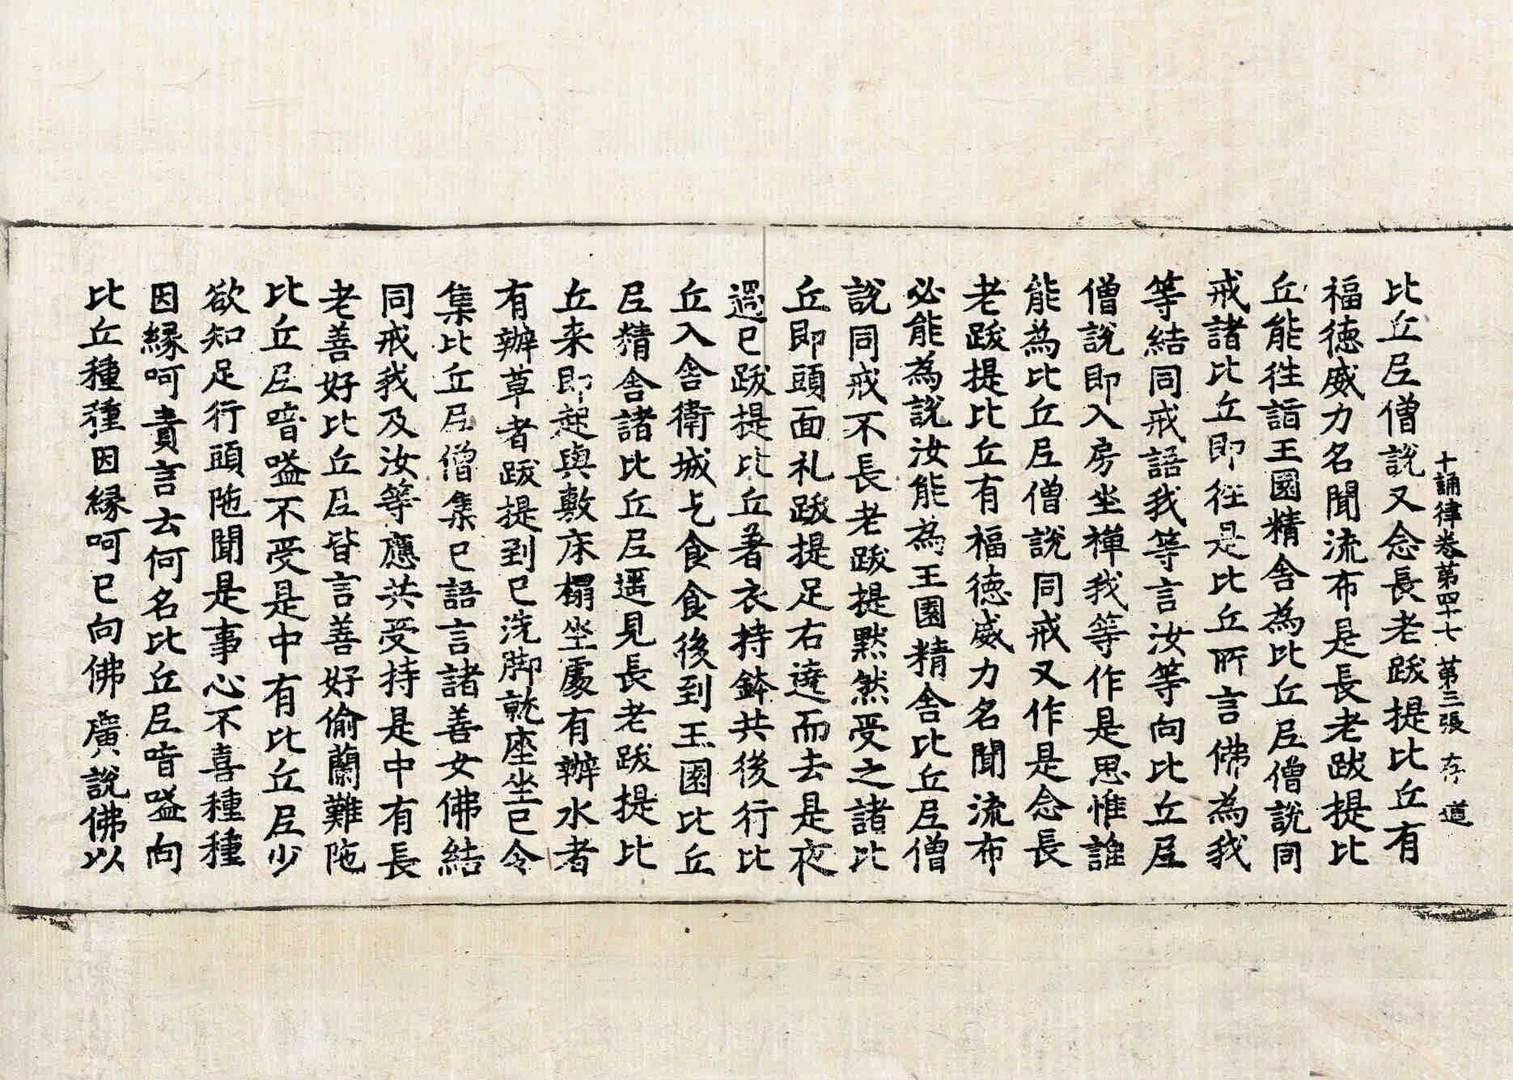 十誦律卷第四十七 第三張 存 道
比丘尼僧說又念長老跋提比丘有
福德威力名聞流布是長老跋提比
丘能往詣王園精舍為比丘尼僧說同
戒諸比丘即往是比丘所言佛為我
等結同戒語我等言汝等向比丘尼
僧說即入房坐禪我等作是思惟誰
能為比丘尼僧說同戒又作是念長
老跋提比丘有福德威力名聞流布
必能為說汝能為王園精舍比丘尼僧
說同戒不長老跋提默然受之諸比
丘即頭面礼跋提足右遶而去是夜
過已跋提比丘著衣持鉢共後行比
丘入舍衛城乞食食後到王園比丘
尼精舍諸比丘尼遥見長老跋提比
丘来即起與敷床榻坐處有辦水者
有辦草者跋提到已洗脚就座坐已令
集比丘尼僧集已語言諸善女佛結
同戒我及汝等應共受持是中有長
老善好比丘尼皆言善好偷蘭難陁
比丘尼喑嗌不受是中有比丘尼少
欲知足行頭陁聞是事心不喜種種
因縁呵責言云何名比丘尼喑嗌向
比丘種種因縁呵已向佛廣說佛以